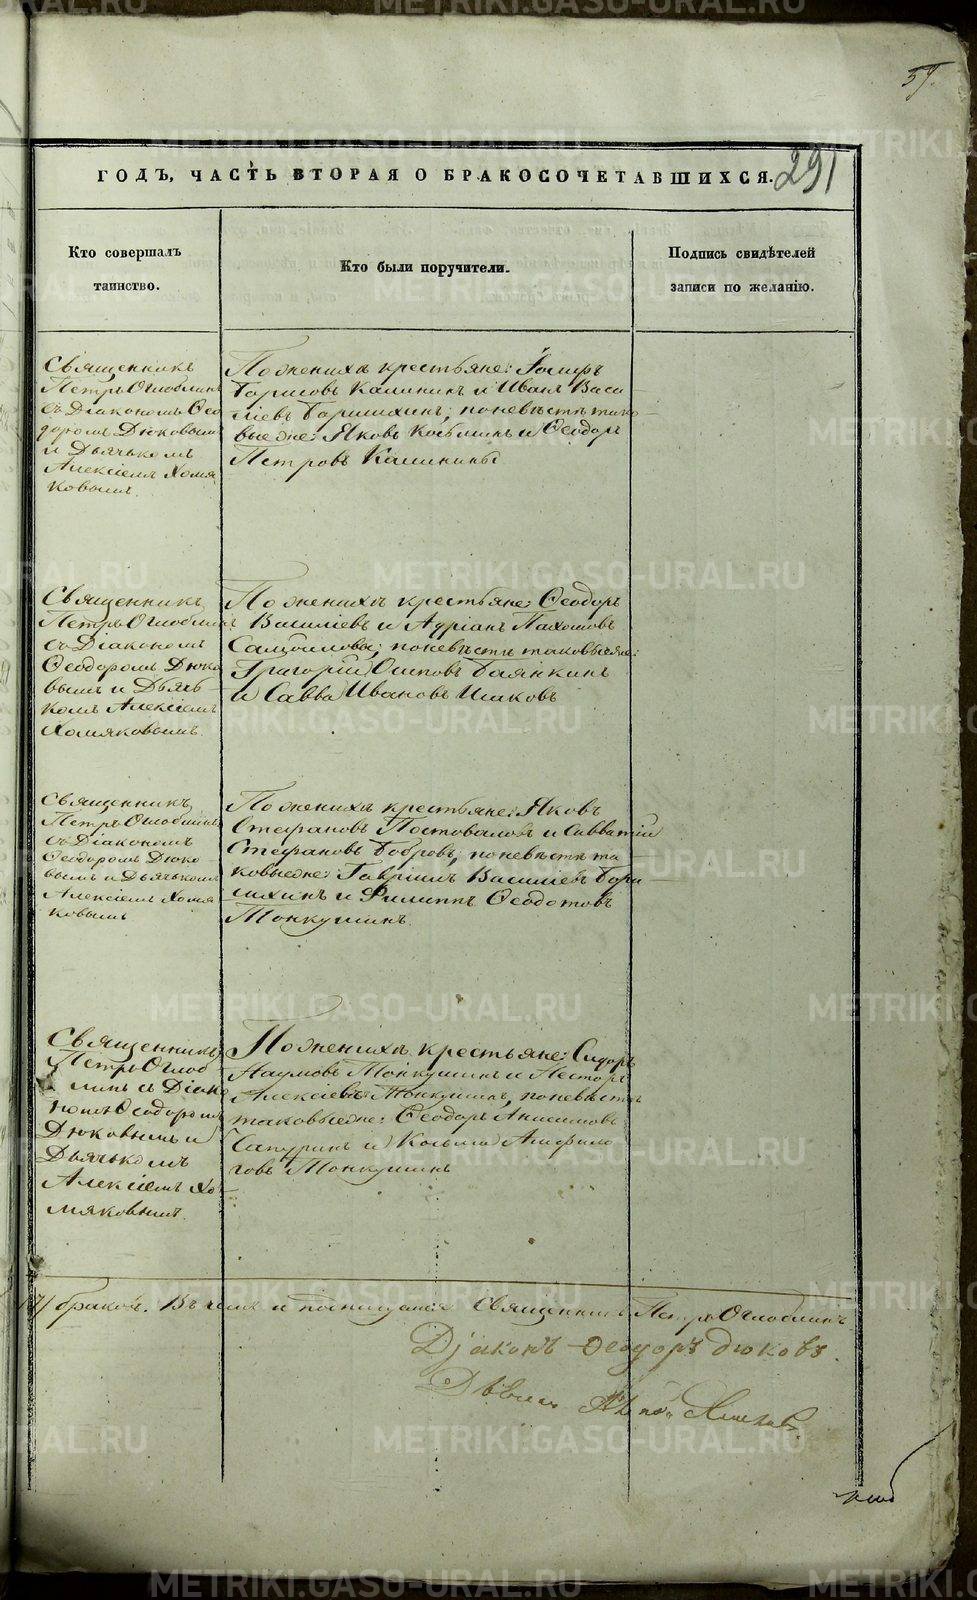 59.
291
ГОДЪ, ЧАСТЬ ВТОРАЯ О БРАКОСОЧЕТАВШИХСЯ.
Кто совершалъ
таинство.
Кто были поручители.
Подпись свидѣтелей
записи по желанію.
Священникъ
Петръ Оглоблинъ
съ Діакономъ Ѳео
доромъ Дюковымъ
и Дьячкомъ
Алексіемъ Хомя
ковымъ.
По женихѣ крестьяне: Іосифъ
Борисовъ Калининъ и Иванъ Васи
ліевъ Барышихинъ; по невѣстѣ тако
вые же: Яковъ Косьминъ и Ѳеодоръ
Петровъ Калинины
Священникъ
Петръ Оглоблинъ
съ Діакономъ
Ѳеодоромъ Дюко
вымъ и Дьяч
комъ Алексіемъ
Хомяковымъ.
По женихѣ крестьяне: Ѳеодоръ
Василіевъ и Адріанъ Пахомовъ
Самойловы; по невѣстѣ таковые же:
Григорій Осиповъ Баянкинъ
и Савва Ивановъ Ишковъ
Священникъ
Петръ Оглоблинъ
съ Діакономъ
Ѳеодоромъ Дюко
вымъ и Дьячкомъ
Алексіемъ Хомя
ковымъ
По женихѣ крестьяне: Яковъ
Стефановъ Постоваловъ и Савватій
Стефановъ Бобровъ; по невѣстѣ та
ковые же: Гавріилъ Василіевъ Бары
шихинъ и Филиппъ Ѳеодотовъ
Тонкушинъ.
Священникъ
Петръ Оглоб
линъ съ Діак
номъ Ѳеодоромъ
Дюковымъ и
Дьячкомъ
Алексіемъ Хо
мяковымъ.
По женихѣ крестьяне: Сидоръ
Наумовъ Тонкушинъ и Несторъ
Алексіевъ Тонкушинъ, по невѣстѣ
таковые же: Ѳеодоръ Анисимовъ
Сапуринъ и Косьма Амфило
говъ Тонкушинъ
браков. Въ чемъ и подписуемся Священникъ Петръ Оглоблинъ
Діаконъ Ѳеодоръ Дюковъ
METRIKI.GASO-URAL.RU